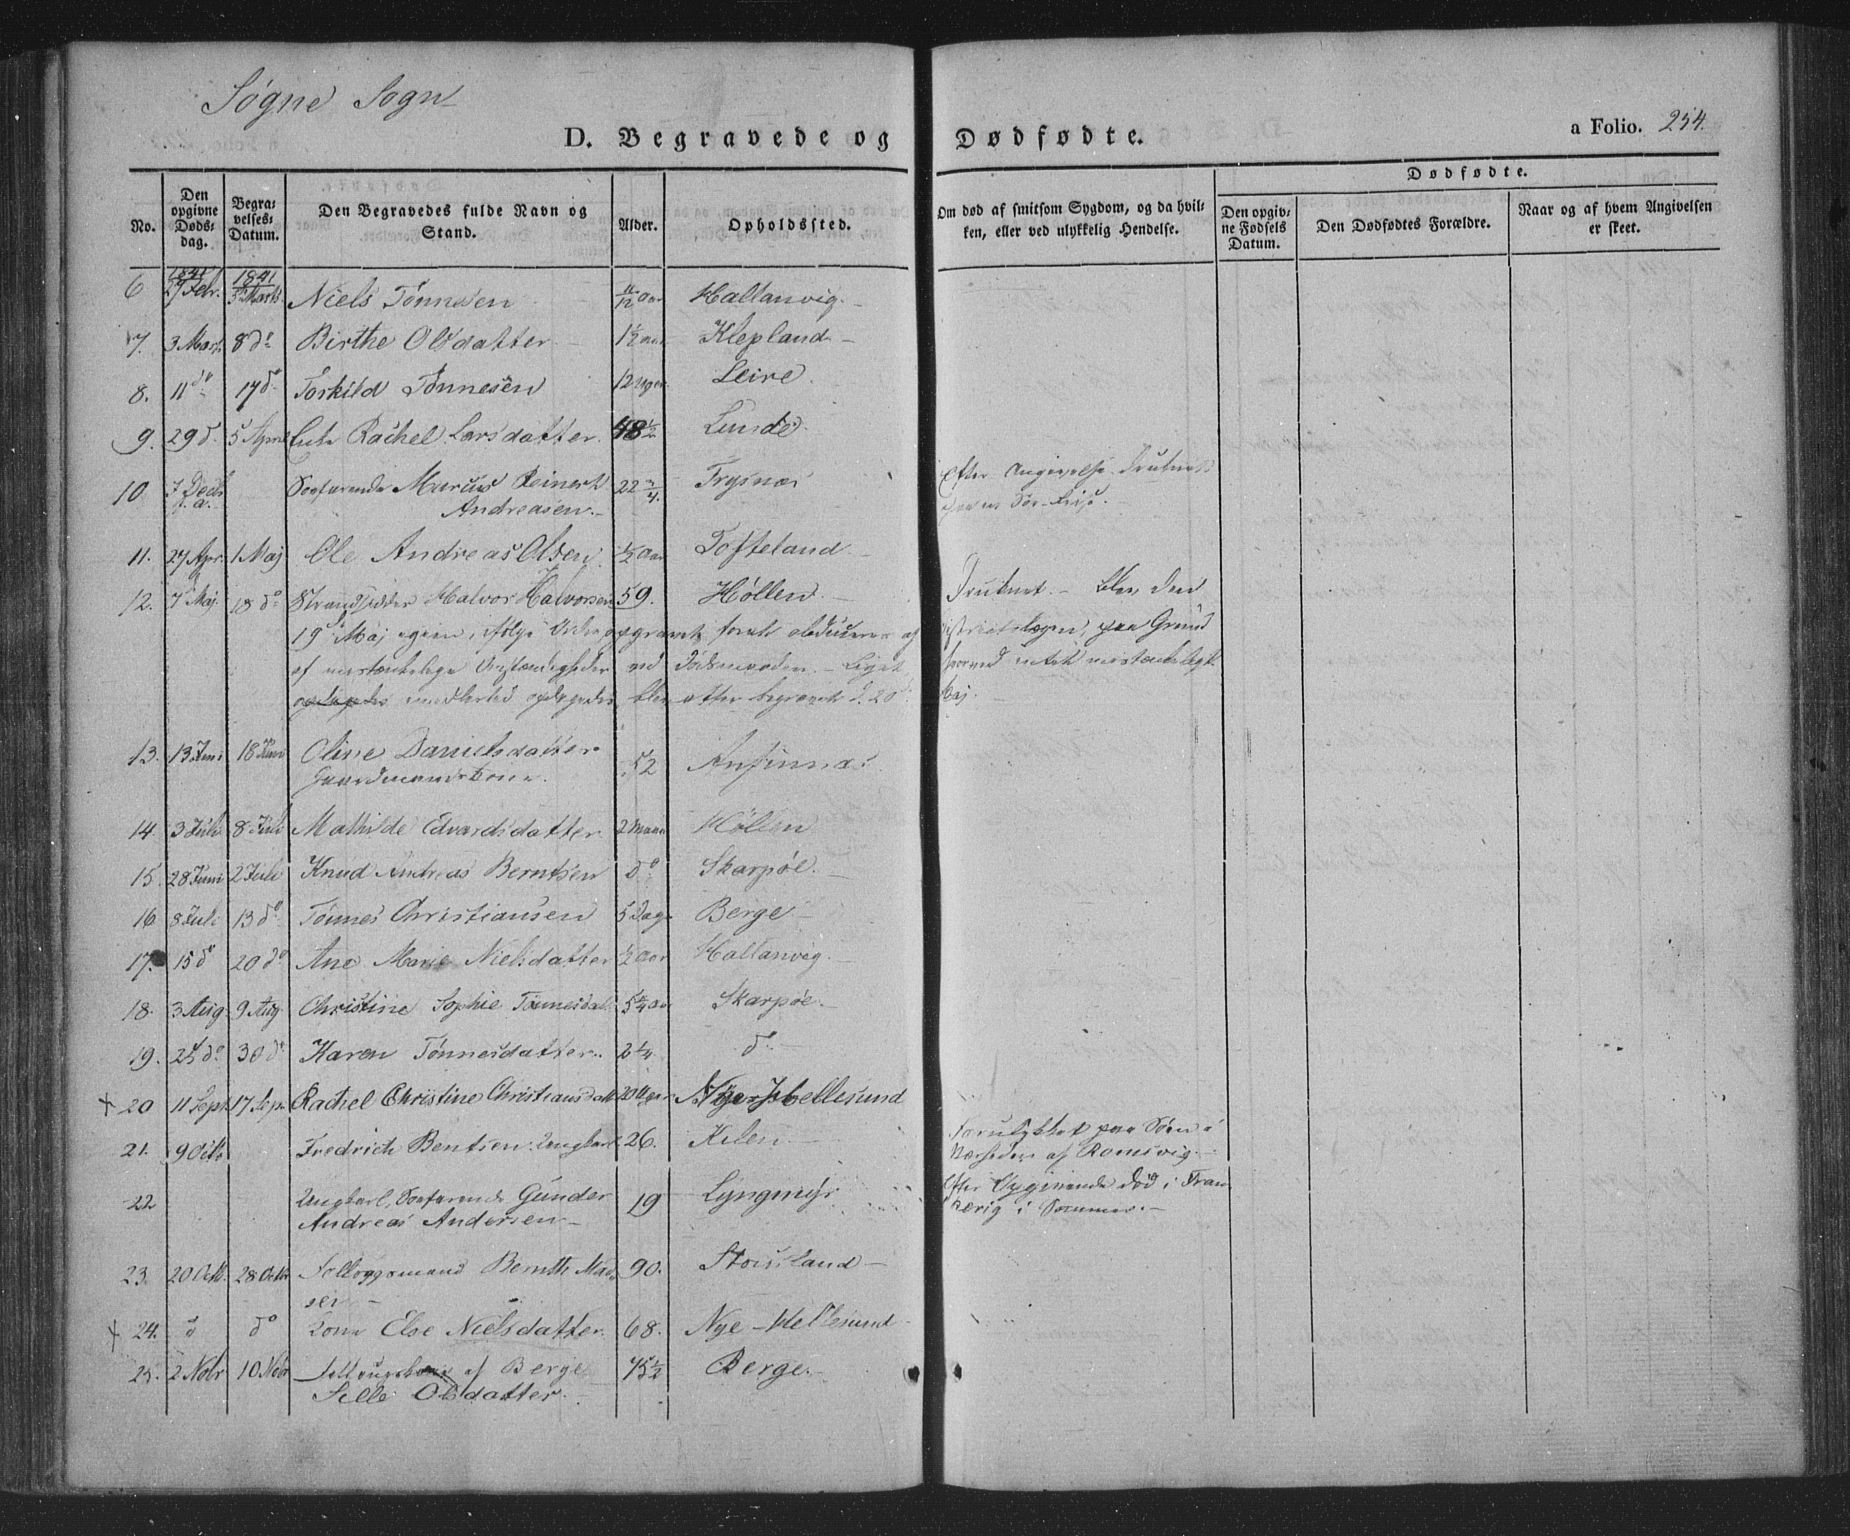 Søgne Sogn
D. Begravede og Dødfødte.
a Folio. 234.
No.
Den opgivne Døds-dag.
Begra-velses-Datum.
Den Begravedes fulde Navn og Stand.
Alder.
Opholdssted.
Om død af smitsom Sygdom, og da hvil-ken, eller ved ulykkelig Hendelse.
Dødfødte.
Den opgiv-ne Fødsels Datum.
Den Dødfødtes Forældre.
Naar og af hvem Angivelsen er skeet.
1841 1841
6 27 Febr. 5 Marts Niels Tønnesen 11/12 aar Hallanvig.
7. 3 Mart. 8 do Birthe Olsdatter 1 1/2 aar Klepland
8. 11 do 17 do Torkild Tønnesen 12 uger Leire.
9. 29 d. 5 April Enke Rachel Larsdatter. 48 1/2 Lunde.
10 7 Decb f. a. Søefarende Marcus Reinert 22 3/4. Trysnæs Efter Angivelse Druknet
Andreasen.
11. 27 Apr. 1 Maj Ole Andreas Olsen. 1/2 Aar Tofteland
12. 7 Maj. 18 do Strandsidder Halvor Halvorsen 59. Høllen. Druknet. - Blev den
19 Maj igjen, ifølge Ordre, opgravet for at obduceres af Districtslægen, paa Grund
af mistænkelige Omstændigheder ved Dødsmaaden. - Liget
imidlertid blev atter begravet d. 20 Maj.
13. 13 Juni 18 Juni Oline Danielsdatter 52
Gaardmandskone.
14. 3 Juli 8 Juli Mathilde Edvardsdatter 2 Maan Høllen
15. 28 Juni 2 Juli Knud Andreas Berntsen do Skarpøe.
16 8 Juli 13 do Tønnes Christiansen 5 Dage Berge
17. 15 do 20 do Ane Marie Nielsdatter 1/2 aar Hallanvig.
18. 3 Aug. 9 Aug. Christine Sophie Tønnesdat. 5 1/4 aar Skarpøe.
19. 25 do 30 do Karen Tønnesdatter. 2 1/4 do
20 11 Sept. 17 Sep. Rachel Christine Christiansdatt 20 Uger Nye Hellesund
21. 9 Octb Fredrich Bentsen. Ungkarl 26. Kilen. Forulykket paa Søen i
Nærheden af Romsvig.
22 Ungkarl, Søefarende Gunder 19 Lyngmyr Efter Opgivende død i Fran
Andreas Andersen kerig i Sommer.
23. 20 Octb. 28 Octbr Follaugsmand Bernth Mad 90. Stousland
sen
24. d do Kone Else Nielsdatter. 68. Nye-Hellesund
25. 2 Nobr 10 Nobr af Berge 75 1/2 Berge.
Sille Olsdatter.